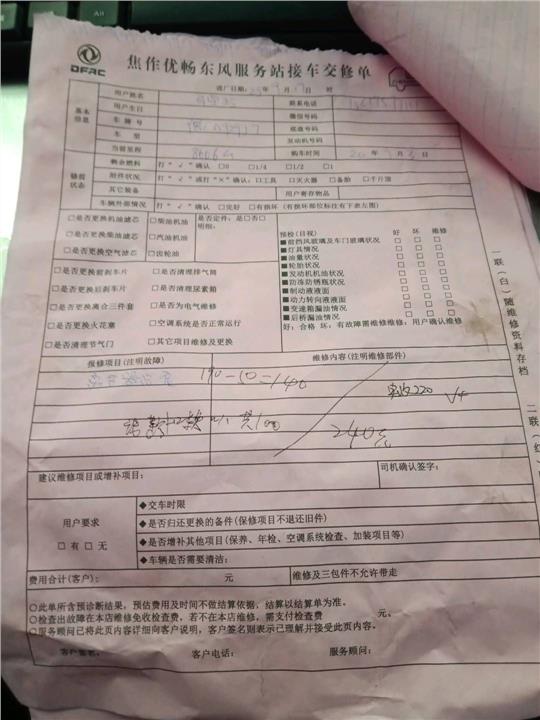 DFAC
焦作优畅东风服务站接车交修单
进厂日期: 年 月 日 时
基本信息
用户姓名 联系电话
用户生日 微信号码
车牌号 底盘号码
车型 发动机号码
当前里程 购车时间 年 月 日
修前状态
剩余燃料 打“√”确认 □0 □1/4 □1/2 □1
附件状况 打“√”或打“×”确认:□工具 □灭火器 □备胎 □千斤顶
其它装备 用户寄存物品
车辆外部情况 打“√”确认 □完好 □有损坏 (有损坏部位标注有下表左图)
□是否更换机油滤芯 □柴油机油 是否定件:是□否□
□是否更换柴油滤芯 □汽油机油 明细:
□是否更换空气滤芯 □齿轮油
□是否更换前刹车片 □是否清理排气筒
□是否更换后刹车片 □是否清理尿素箱
□是否更换离合三件套 □是否为电气维修
□是否更换火花塞 □空调系统是否正常运行
□是否清理节气门 □其它项目维修及更换
预检(目视) 好 坏 维修
■前挡风玻璃及车门玻璃状况 □ □ □
■灯具情况 □ □ □
■油量状况 □ □ □
■轮胎状况 □ □ □
■发动机机油状况 □ □ □
■防冻防锈瓶状况 □ □ □
■制动液液面 □ □ □
■动力转向液液面 □ □ □
■变速箱漏油情况 □ □ □
■后桥漏油情况 □ □ □
好:合格 坏:有故障需维修维修:用户确认维修
报修项目(注明故障) 维修内容(注明维修部件)
190-10=140
实收220
共100
240元
建议维修项目或增补项目: 司机确认签字:
用户要求
□有 □无
◆交车时限
◆是否归还更换的备件(保修项目不退还旧件)
◆是否增补其他项目(保养、年检、空调系统检查、加装项目等)
◆车辆是否需要清洁:
费用合计(客户): 元 维修及三包件不允许带走
○此单所含预诊断结果,预估费用及时间不做结算依据,结算以结算单为准。
○检查出故障在本店维修免收检查费,若不在本店维修,需支付检查费
○服务顾问已将此页内容详细向客户说明,客户签名则表示已理解并接受此页内容。
客户签名: 客户电话: 服务顾问:
一联(白)随维修资料存档
二联(红